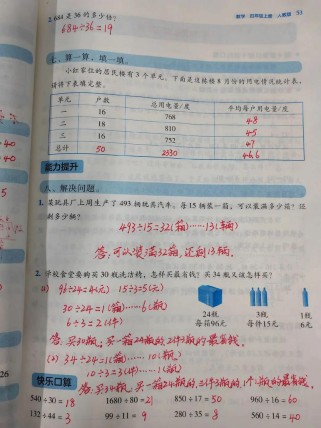 数学·四年级上册·人教版 93
2. 684是36的多少倍?
684÷36=19
七、算一算,填一填。
小红家住的居民楼有3个单元,下面是这栋楼8月份的用电情况统计表,
请将下表填完整。
单元 户数 总用电量/度 平均每户用电量/度
一 16 768 48
二 18 810 45
三 16 752 47
总计 50 2330 46.6
能力提升
八、解决问题。
1. 某玩具厂上周生产了493辆玩具汽车,每15辆装一箱,可以装满多少箱?还
剩多少辆?
493÷15=32(箱)······13(辆)
答:可以装满32箱,还剩13辆。
2. 学校食堂要购买30瓶洗洁精,怎样买最省钱?买34瓶又该怎样买?
(1) 96÷24=4(元) 15÷3=5(元)
30÷24=1(箱)······6(瓶)
6÷3=2(件)
24瓶 3瓶 1瓶
每箱96元 每件15元 6元
答:买30瓶,买一箱24瓶的2件3瓶的最省钱。
(2) 34÷24=1(箱)······10(瓶)
10÷3=3(件)······1(瓶)
答:买34瓶,买一箱24瓶的,3件3瓶的,1个1瓶的最省钱。
快乐口算
540÷30=18 1680÷80=21 850÷17=50 960÷16=60
132÷44=3 99÷11=9 280÷35=8 560÷14=40